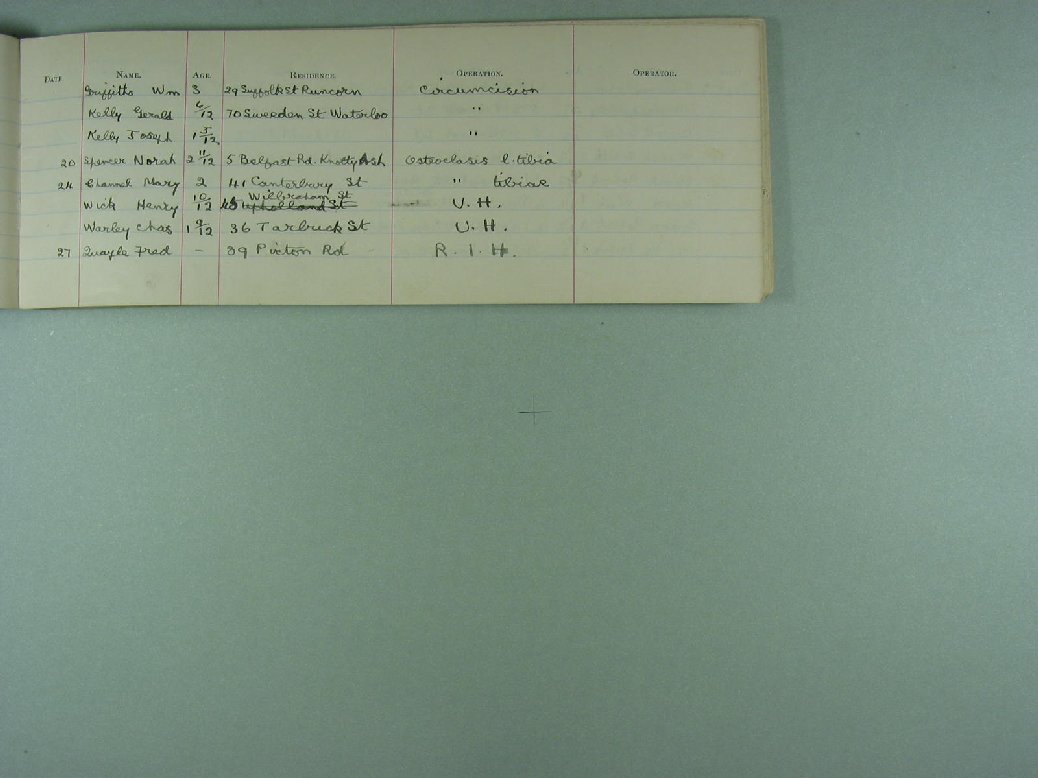 Date Name. Age. Residence. Operation. Operator.
Griffiths Wm 3 29 Suffolk St Runcorn Circumcision
Kelly Gerald 6/12 70 Sweeden St Waterloo "
Kelly Joseph 1 5/12 "
20 Spencer Norah 2 11/12 5 Belfast Rd. Knotty Ash Osteoclasis l. tibia
24 Channel Mary 2 41 Canterbury St " tibiae
Wick Henry 10/12 Wilbraham St U. H.
Warley Chas 1 9/12 36 Tarbuck St U. H.
27 Quayle Fred - 39 Picton Rd R. I. H.